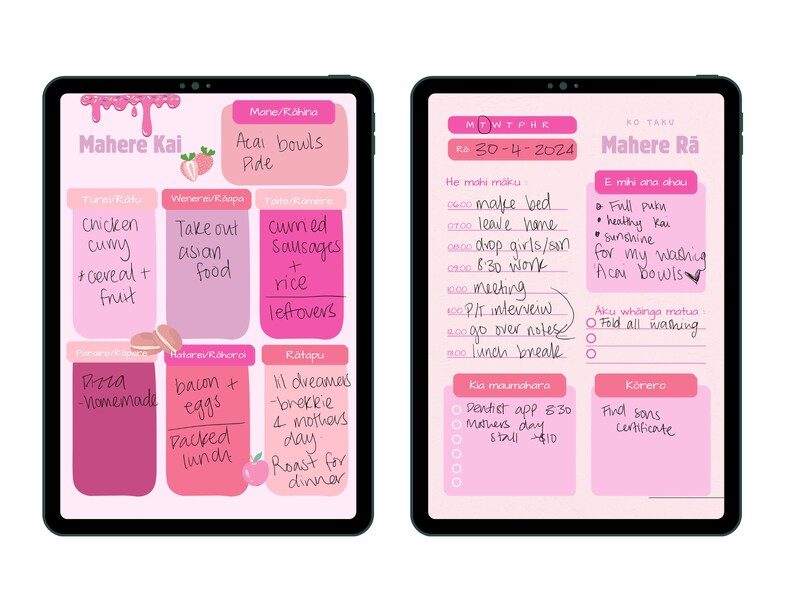 Mahere Kai
Mane/Rāhina
Acai bowls
Pide
Turei/Rātu
Chicken
curry
+ cereal +
fruit
Wenerei/Rāapa
Take out
asian
food
Taite/Rāmere
curried
sausages
+
rice
leftovers
Paraire/Rāpare
Pizza
-homemade
Hatarei/Rāhoroi
bacon +
eggs
Packed
lunch
Rātapu
lil dreamers
-brekkie
4 mothers
day.
Roast for
dinner
M T W T P H R
Rā: 30-4-2024
KO TAKU
Mahere Rā
He mahi māku :
06.00 make bed
07.00 leave home
08.00 drop girls/son
09.00 8:30 work
10.00 meeting
11.00 P/T interveiw
12.00 go over notes
13.00 lunch break
E mihi ana ahau
Full puku
• healthy kai
• sunshine
for my washing
Acai bowls
Āku whāinga matua :
Fold all washing
Kia maumahara
Dentist app 8:30
Mothers day
stall →$10
Kōrero
Find sons
certificate